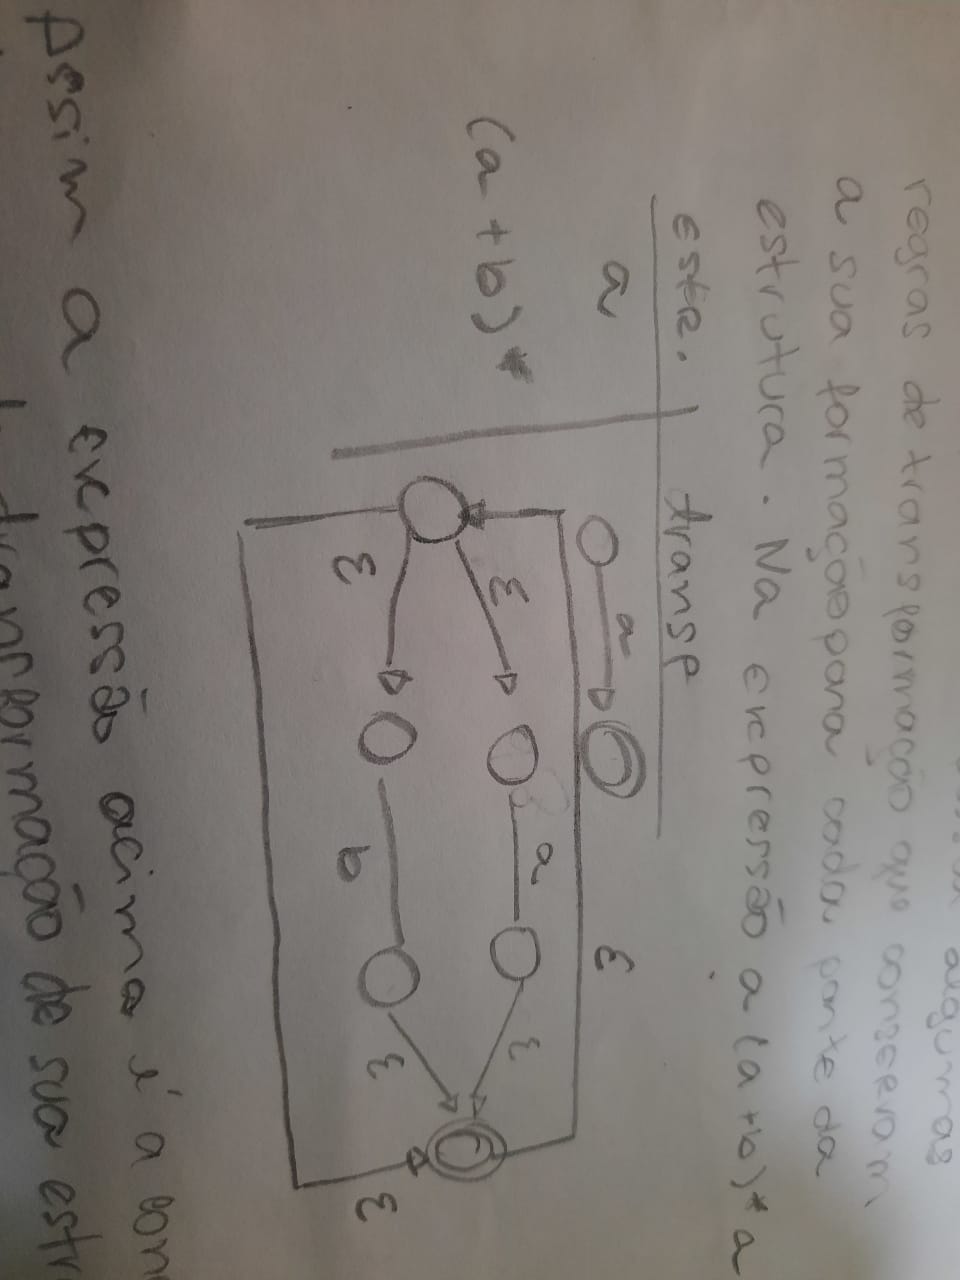 algumas
regras de transformação que conservam
a sua formação para cada parte da
estrutura. Na expressão a (a+b)* a
Estr. transf
a a
ε
(a+b)* ε a ε
ε b ε ε
Assim a expressão acima é a con
transformação de sua estr